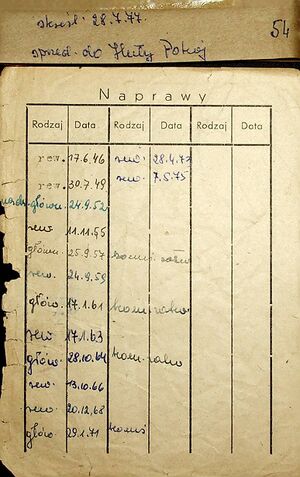 skreśl. 28.7.77.
sprzed. do Huty Pokój
54
Naprawy
Rodzaj Data Rodzaj Data Rodzaj Data
rew. 17.6.46 rew. 28.4.73
rew. 30.7.49 rew. 7.5.75
główna 24.9.52
rew. 11.11.55
główna 25.9.57
rew. 24.9.59
głów. 17.1.61
rew 17.1.63
głów. 28.10.64
rew. 13.10.66
rew. 20.12.68
głów. 29.1.71